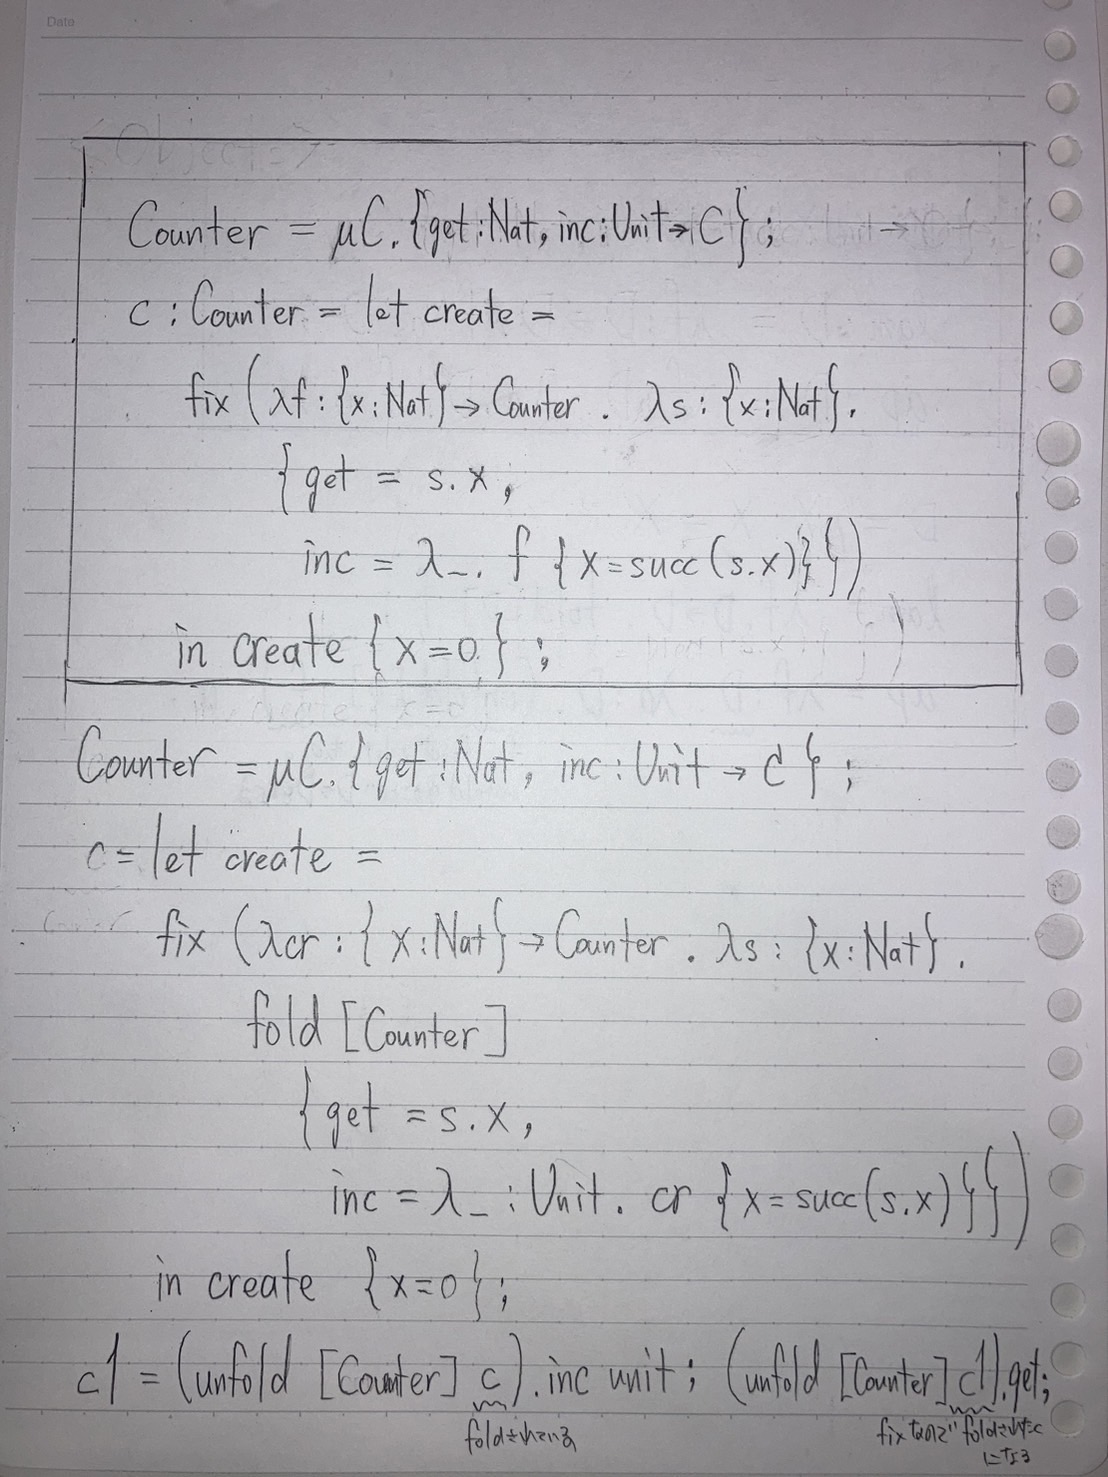 Date
Counter = μC. {get : Nat, inc : Unit → C} ;
c : Counter = let create =
fix (λf : {x : Nat} → Counter . λs : {x : Nat}.
{get = s.x,
inc = λ_. f {x = succ(s.x)}})
in create {x = 0} ;
Counter = μC. {get : Nat, inc : Unit → C} ;
c = let create =
fix (λcr : {x : Nat} → Counter . λs : {x : Nat}.
fold [Counter]
{get = s.x,
inc = λ_ : Unit. cr {x = succ(s.x)}})
in create {x = 0} ;
c1 = (unfold [Counter] c).inc unit ; (unfold [Counter] c1).get;
foldされている
fixなので foldされたc
になる